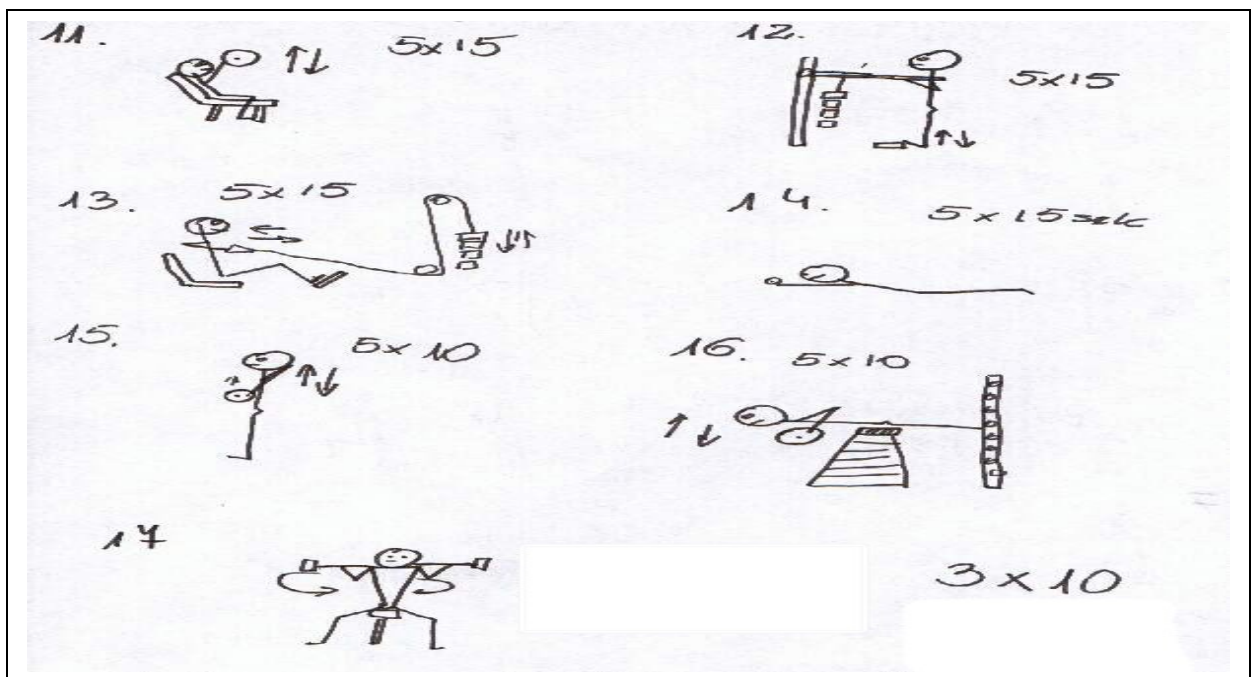 11. 5x15
12. 5x15
13. 5x15
14. 5x15 sek
15. 5x10
16. 5x10
17 3x10